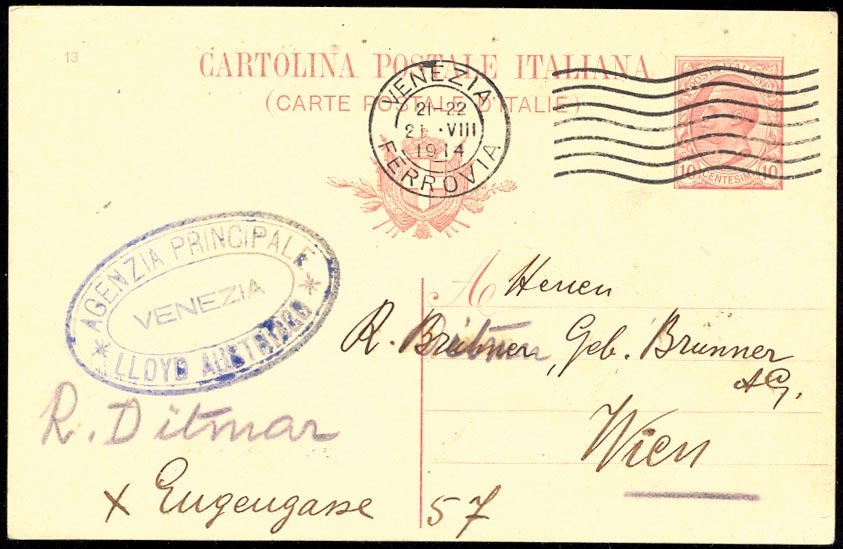 13
CARTOLINA POSTALE ITALIANA
(CARTE POSTALE D'ITALIE)
VENEZIA
21-22
21 · VIII
1914
FERROVIA
POSTE ITALIANE
10 CENTESIMI 10
AGENZIA PRINCIPALE
VENEZIA
* LLOYD AUSTRIACO *
A Herren
R. Ditmar, Geb. Brunner
AG.
Wien
R. Ditmar
x Eugengasse 57